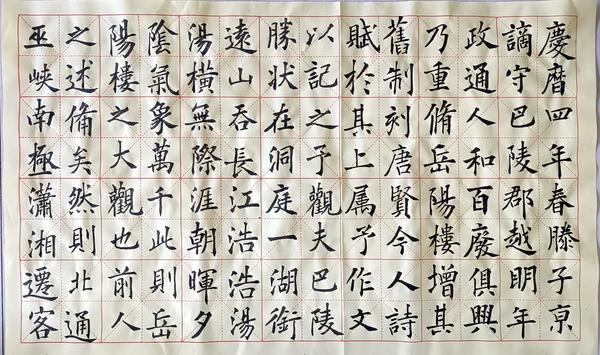 慶暦四年春滕子亰
謫守巴陵郡越明年
政通人和百廢俱興
乃重脩岳陽樓增其
舊制刻唐賢今人詩
賦於其上属予作文
以記之予觀夫巴陵
勝状在洞庭一湖銜
遠山吞長江浩浩湯
湯橫無際涯朝暉夕
陰氣象萬千此則岳
陽樓之大觀也前人
之述備矣然則北通
巫峽南極瀟湘遷客